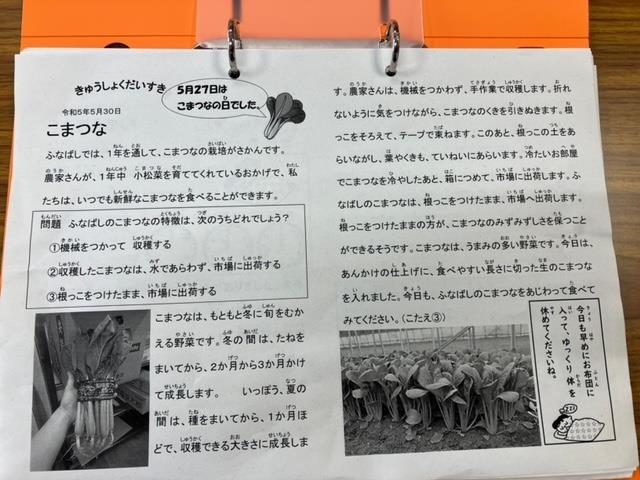 きゅうしょくだいすき
5月27日は
こまつなの日でした。
令和5年5月30日
こまつな
ふなばしでは、1年を通して、こまつなの栽培がさかんです。
農家さんが、1年中 小松菜を育ててくれているおかげで、私
たちは、いつでも新鮮なこまつなを食べることができます。
問題 ふなばしのこまつなの特徴は、次のうちどれでしょう？
①機械をつかって 収穫する
②収穫したこまつなは、水であらわず、市場に出荷する
③根っこをつけたまま、市場に出荷する
こまつなは、もともと冬に旬をむか
える野菜です。冬の間は、たねを
まいてから、2か月から3か月かけ
て成長します。 いっぽう、夏の
間は、種をまいてから、1か月ほ
どで、収穫できる大きさに成長しま
す。農家さんは、機械をつかわず、手作業で収穫します。折れ
ないように気をつけながら、こまつなのくきを引きぬきます。根
っこをそろえて、テープで束ねます。このあと、根っこの土をあ
らいながし、葉やくきも、ていねいにあらいます。冷たいお部屋
でこまつなを冷やしたあと、箱につめて、市場に出荷します。ふ
なばしのこまつなは、根っこをつけたまま、市場へ出荷します。
根っこをつけたままの方が、こまつなのみずみずしさを保つこと
ができるそうです。こまつなは、うまみの多い野菜です。今日は、
あんかけの仕上げに、食べやすい長さに切った生のこまつな
を入れました。今日も、ふなばしのこまつなをあじわって食べて
みてください。（こたえ③）
今日も早めにお布団に
入って、ゆっくり体を
休めてくださいね。